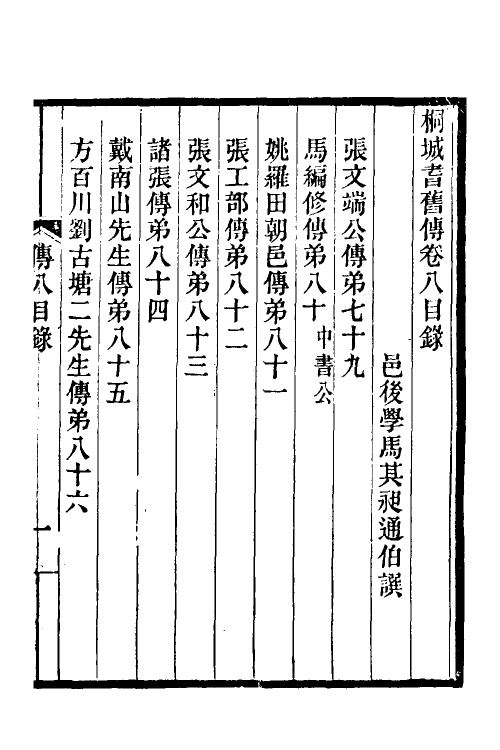 桐城耆舊傳卷八目錄
邑後學馬其昶通伯譔
張文端公傳弟七十九
馬編修傳弟八十 中書公
姚羅田朝邑傳弟八十一
張工部傳弟八十二
張文和公傳弟八十三
諸張傳弟八十四
戴南山先生傳弟八十五
方百川劉古塘二先生傳弟八十六
傳八目錄
一